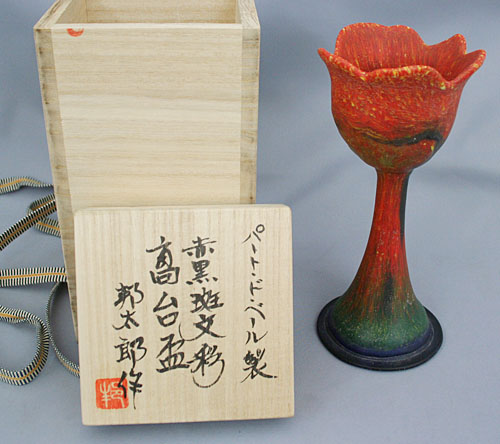 パート・ド・ベール製
赤黒斑文彩
高台盃
邦太郎作
邦